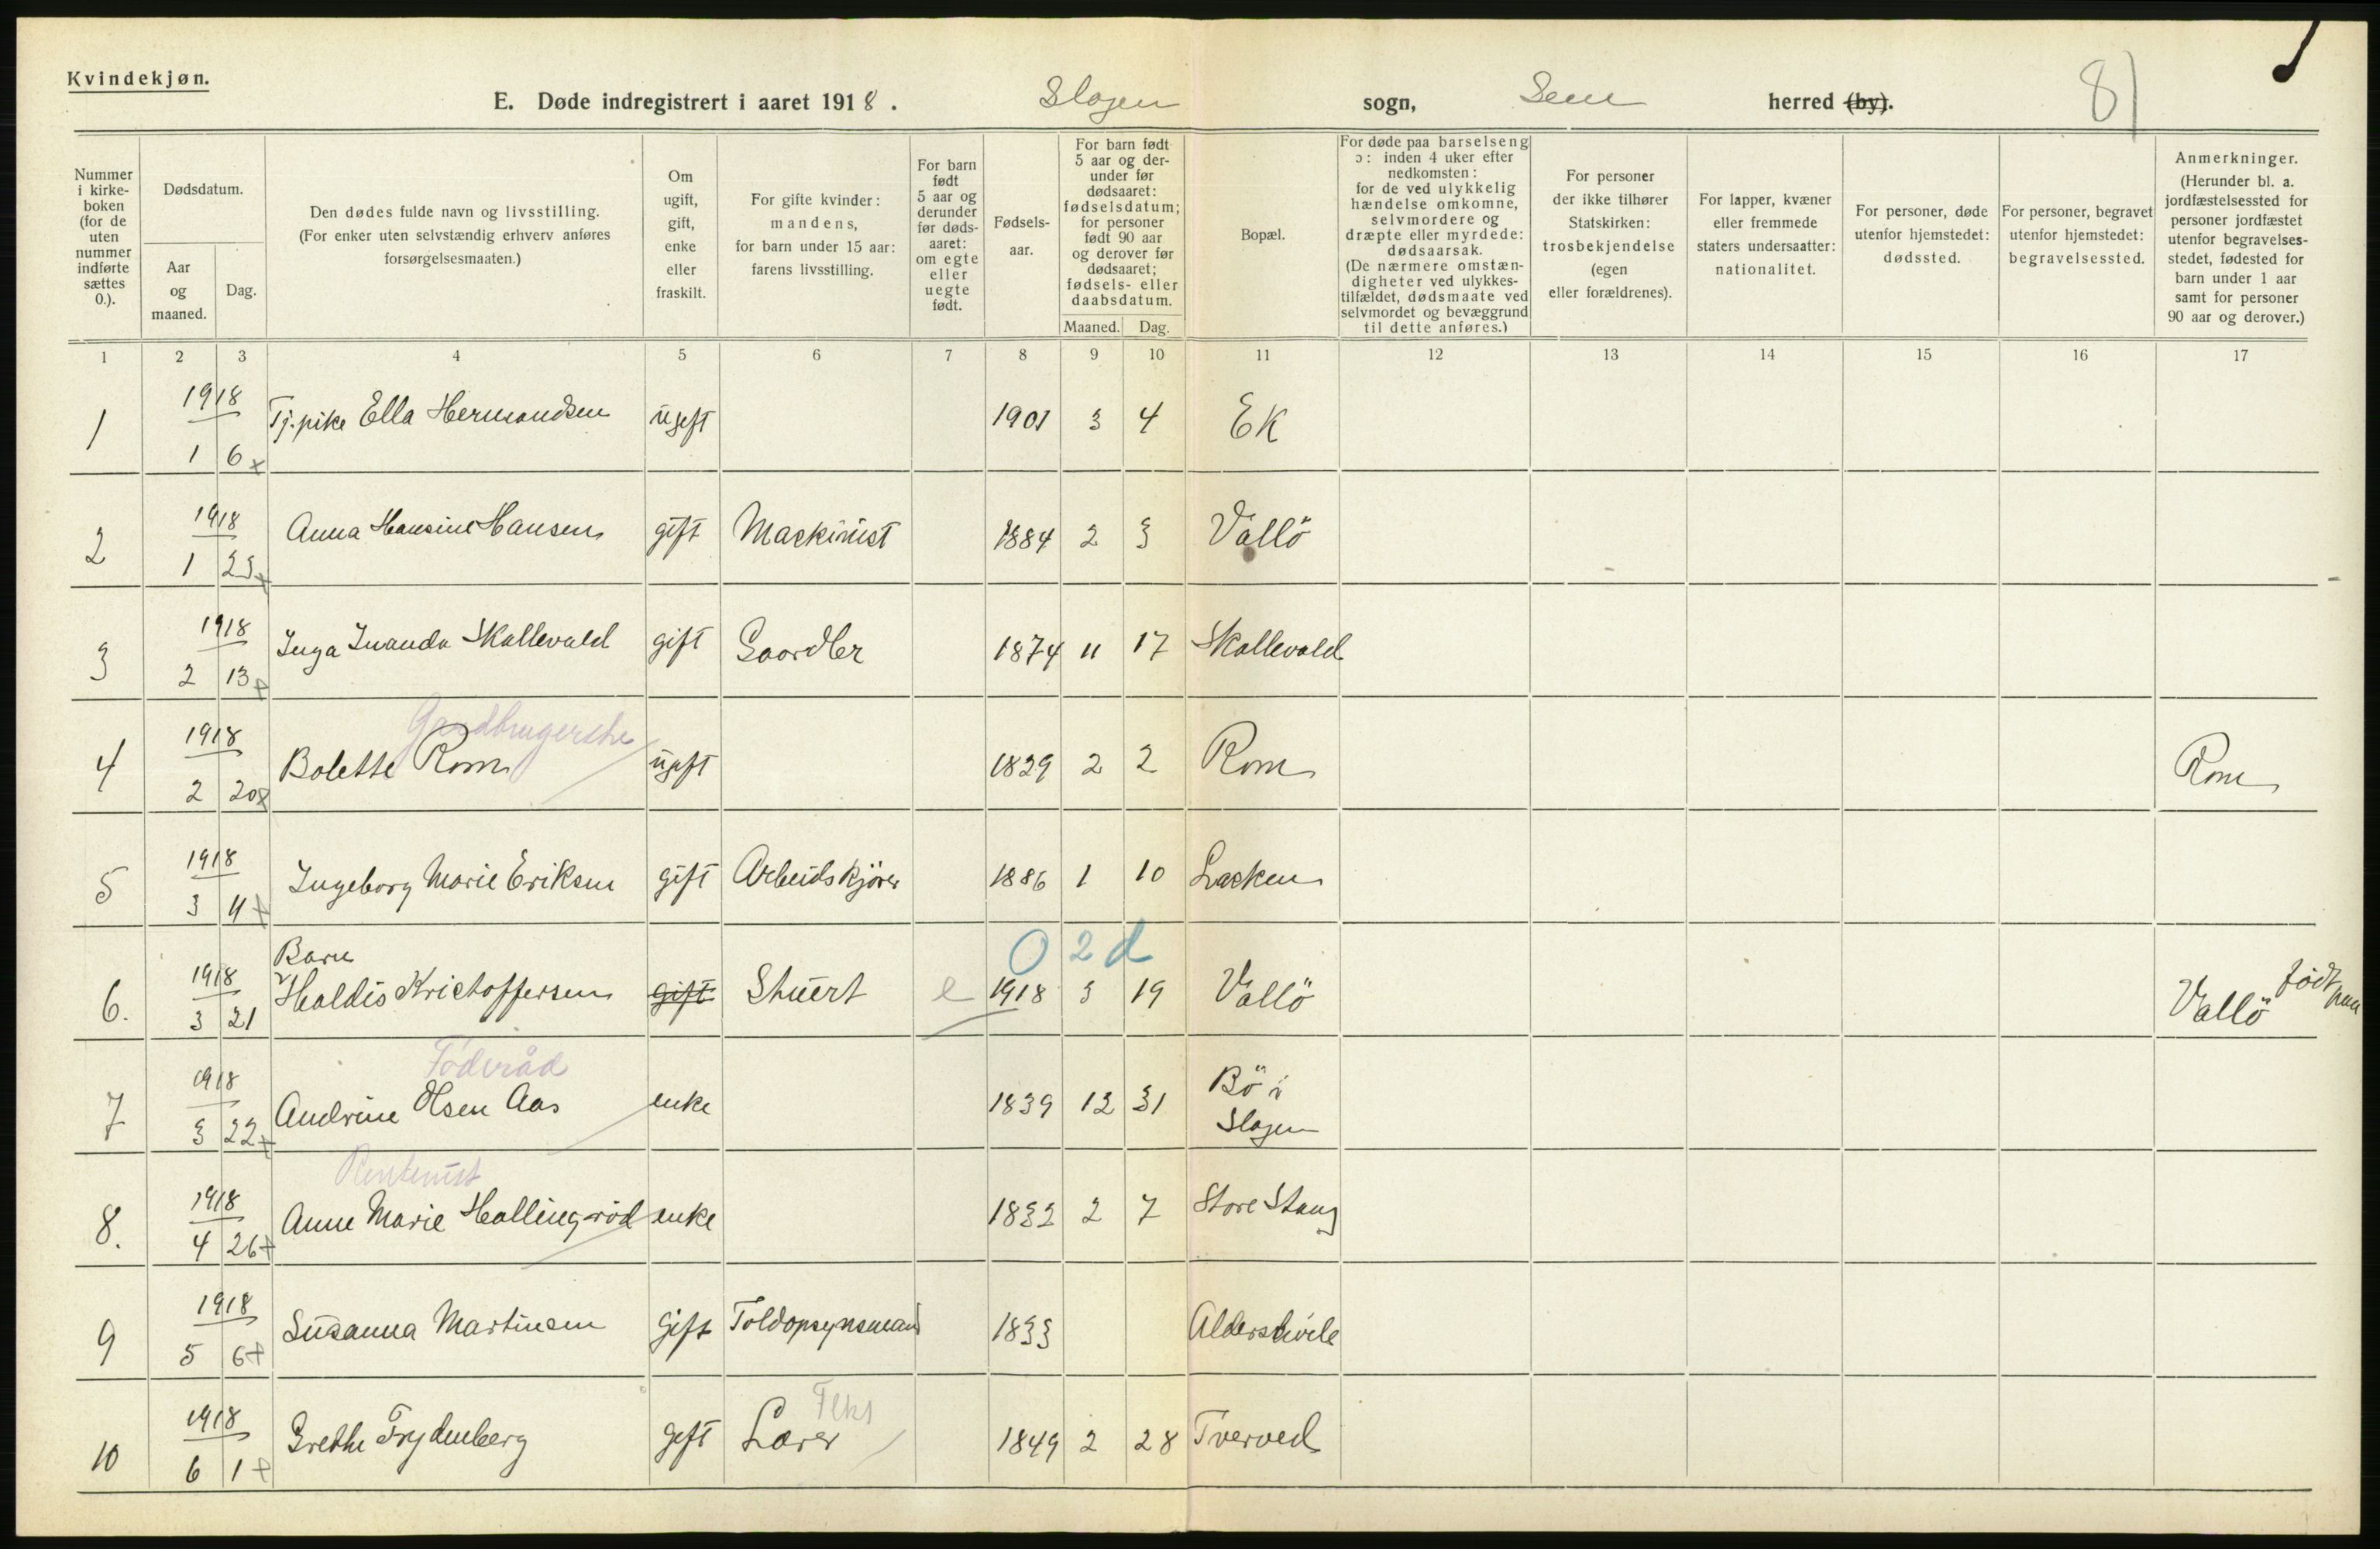 Kvindekjøn.
E. Døde indregistrert i aaret 1918. Slagen sogn, Sem herred (by). 81
Nummer i kirkeboken (for de uten nummer indførte sættes 0.).
Dødsdatum.
Aar og maaned.
Dag.
Den dødes fulde navn og livsstilling.
(For enker uten selvstændig erhverv anføres forsørgelsesmaaten.)
Om ugift, gift, enke eller fraskilt.
For gifte kvinder: mandens, for barn under 15 aar: farens livsstilling.
For barn født 5 aar og derunder før dødsaaret: om egte eller uegte født.
Fødselsaar.
For barn født 5 aar og derunder før dødsaaret: fødselsdatum; for personer født 90 aar og derover før dødsaaret; fødsels- eller daabsdatum.
Maaned. Dag.
Bopæl.
For døde paa barselseng ɔ: inden 4 uker efter nedkomsten: for de ved ulykkelig hændelse omkomne, selvmordere og dræpte eller myrdede: dødsaarsak. (De nærmere omstændigheter ved ulykkestilfældet, dødsmaate ved selvmordet og bevæggrund til dette anføres.)
For personer der ikke tilhører Statskirken: trosbekjendelse (egen eller forældrenes).
For lapper, kvæner eller fremmede staters undersaatter: nationalitet.
For personer, døde utenfor hjemstedet: dødssted.
For personer, begravet utenfor hjemstedet: begravelsessted.
Anmerkninger. (Herunder bl. a. jordfæstelsessted for personer jordfæstet utenfor begravelsesstedet, fødested for barn under 1 aar samt for personer 90 aar og derover.)
1 2 3 4 5 6 7 8 9 10 11 12 13 14 15 16 17
1 1918 1 6 Tj.pike Ella Hermandsen ugift 1901 3 4 Ek
2 1918 1 23 Anna Hansine Hansen gift Maskinist 1884 2 3 Vallö
3 1918 2 13 Inga Inanda Skallevald gift Gaardbr 1874 11 17 Skallevald
Gaardbrugerske
4 1918 2 20 Bolette Rom ugift 1829 2 2 Rom Rom
5 1918 3 11 Ingeborg Marie Eriksen gift Arbeidskjörer 1886 1 10 Lasken
Barn 0 2 d
6. 1918 3 21 Haldis Kristoffersen gift Stuert e 1918 3 19 Vallö Vallö födt paa
Föderåd
7 1918 3 22 Andrine Olsen Aas enke 1839 12 31 Bö i Slagen
Rentenist
8. 1918 4 26 Anne Marie Hallingröd enke 1832 2 7 Store Stang
9 1918 5 6 Susanna Martinsen Gift Toldopsynsmand 1833 Aldershvile
Fhs
10 1918 6 1 Grethe Frydenberg gift Lærer 1849 2 28 Tverved